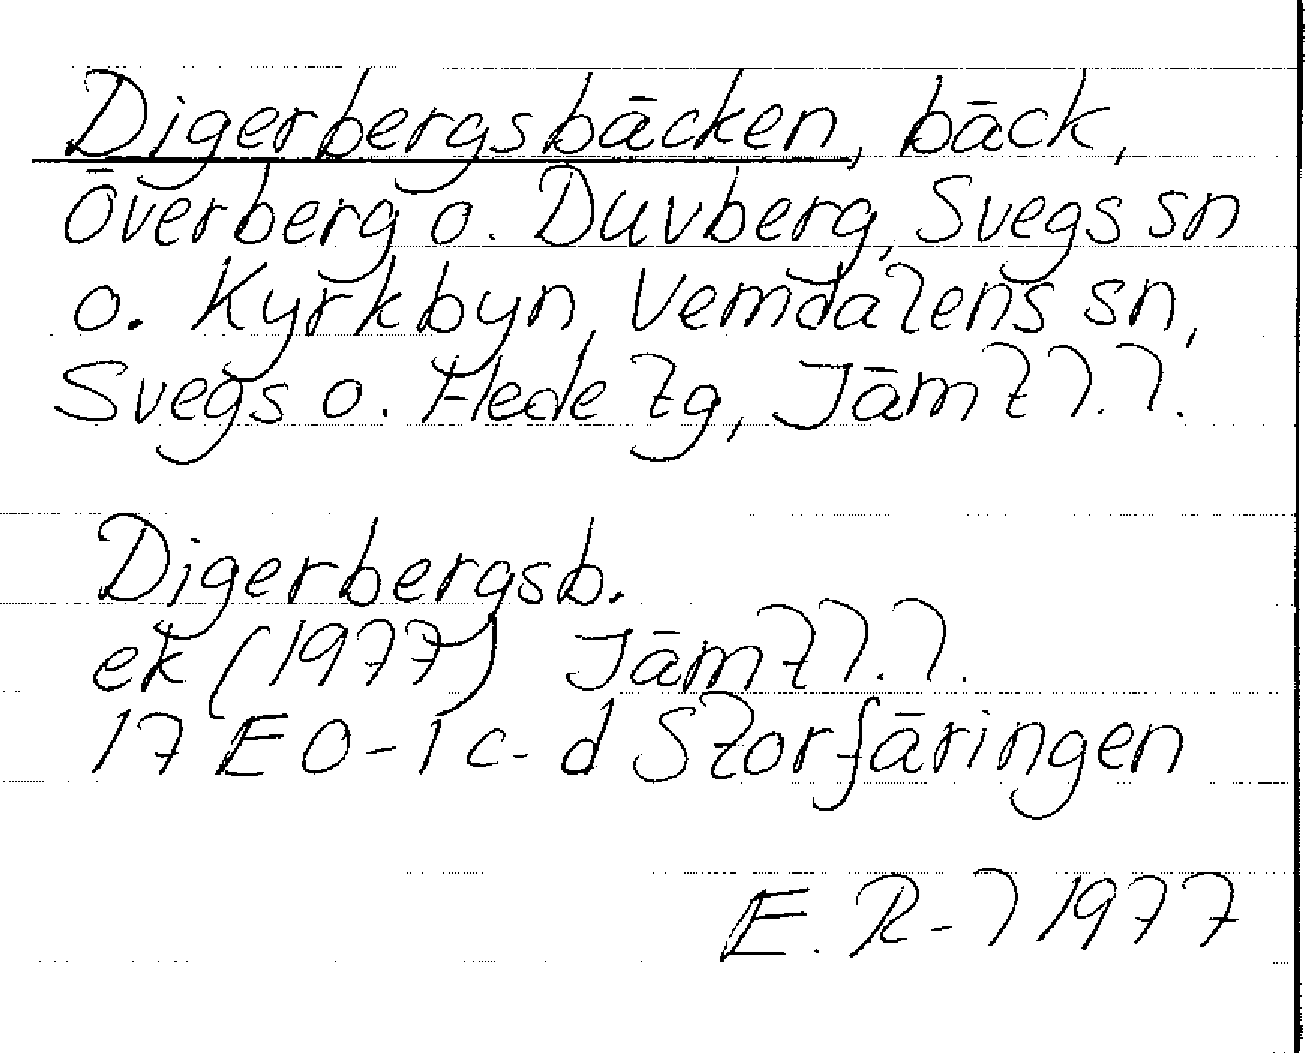 Digerbergsbäcken, bäck,
Överberg o. Duvberg, Svegs sn
o. Kyrkbyn, Vemdalens sn,
Svegs o. Hede tg, Jämtl. l.
Digerbergsb.
ek (1977) Jämtl. l.
17 E 0-1 c-d Storfäringen
E. R-l 1977